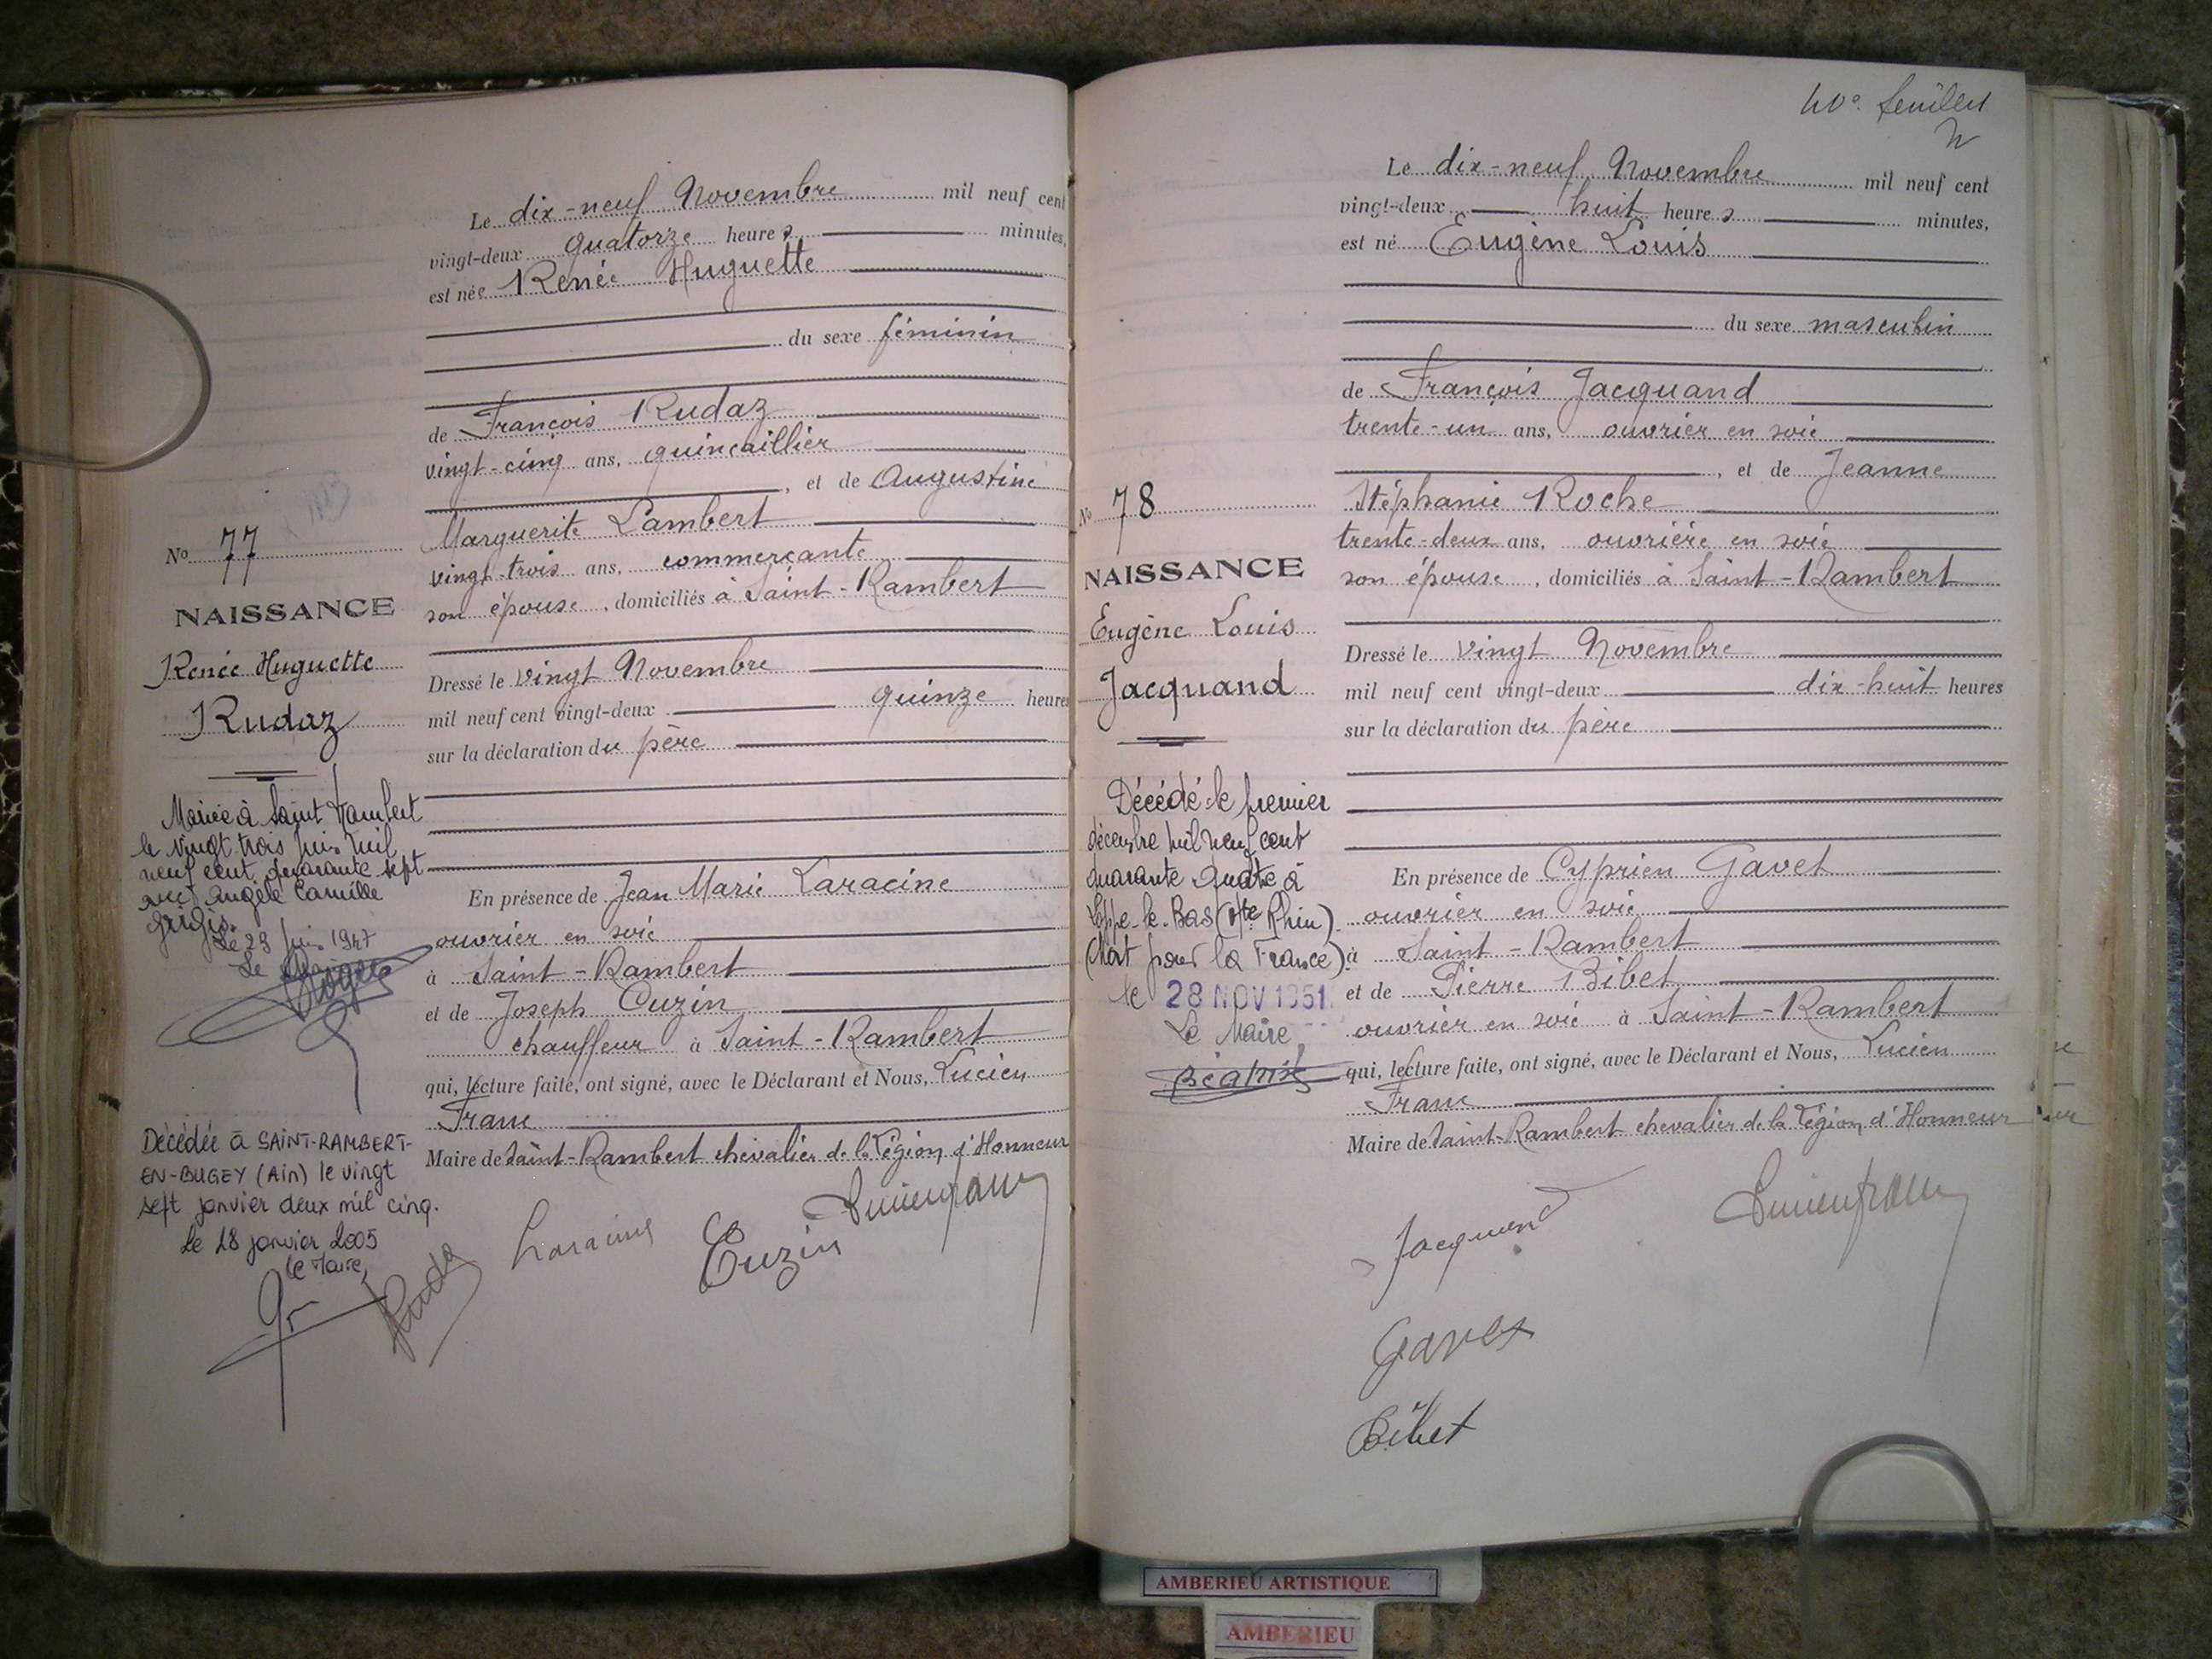 Le dix-neuf Novembre mil neuf cent
vingt-deux quatorze heures minutes,
est née Renée Huguette
du sexe féminin
de François Rudaz
vingt-cinq ans, quincaillier
, et de Augustine
Marguerite Lambert
vingt-trois ans, commerçante
son épouse, domiciliés à Saint-Rambert
Dressé le vingt Novembre
mil neuf cent vingt-deux quinze heures
sur la déclaration du père
En présence de Jean Marie Laracine
ouvrier en soie
à Saint-Rambert
et de Joseph Cuzin
chauffeur à Saint-Rambert
qui, lecture faite, ont signé, avec le Déclarant et Nous, Lucien
Franc
Maire de Saint-Rambert chevalier de la Légion d'Honneur
No 77
NAISSANCE
Renée Huguette
Rudaz
Mariée à Saint Rambert
le vingt trois juin mil
neuf cent quarante sept
avec Angèle Camille
Le 23 juin 1947
Le
Décédée à SAINT-RAMBERT-
EN-BUGEY (Ain) le vingt
sept janvier deux mil cinq.
Le 28 janvier 2005
Le Maire,
Rudaz
Laracine
Cuzin
Lucien Franc
40e feuillet
Le dix-neuf Novembre mil neuf cent
vingt-deux huit heures minutes,
est né Eugène Louis
du sexe masculin
de François Jacquand
trente-un ans, ouvrier en soie
, et de Jeanne
Stéphanie Roche
trente-deux ans, ouvrière en soie
son épouse, domiciliés à Saint-Rambert
Dressé le vingt Novembre
mil neuf cent vingt-deux dix-huit heures
sur la déclaration du père
En présence de Cyprien Gavet
ouvrier en soie
à Saint-Rambert
et de Pierre Bibet
ouvrier en soie à Saint-Rambert
qui, lecture faite, ont signé, avec le Déclarant et Nous, Lucien
Franc
Maire de Saint-Rambert chevalier de la Légion d'Honneur
No 78
NAISSANCE
Eugène Louis
Jacquand
Décédé le premier
décembre mil neuf cent
quarante quatre à
Seppe-le-Bas (Hte Rhin).
(Mort pour la France).
le 28 NOV 1951
Le Maire,
Jacquand
Lucien Franc
Gavet
Bibet
AMBERIEU ARTISTIQUE
AMBERIEU